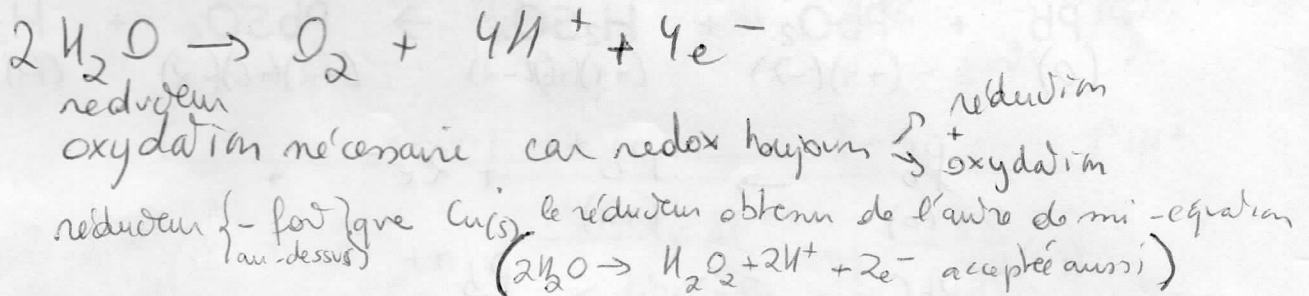 2H₂O → O₂ + 4H⁺ + 4e⁻
réducteur
oxydation nécessaire car redox toujours ↗ réduction + ↘ oxydation
réducteur {- fort} que Cu(s), le réducteur obtenu de l'autre demi-équation
{au-dessus}
(2H₂O → H₂O₂ + 2H⁺ + 2e⁻ acceptée aussi)